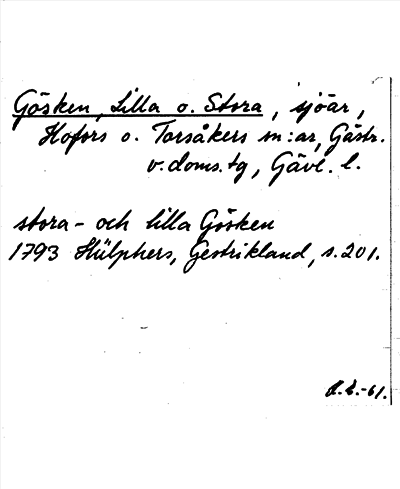 Gösken, Lilla o. Stora, sjöar,
Hofors o. Torsåkers sn:ar, Gästr.
v. doms.tg, Gävl. l.
stora- och lilla Gösken
1793 Hülphers, Gestrikland, s. 201.
-61.